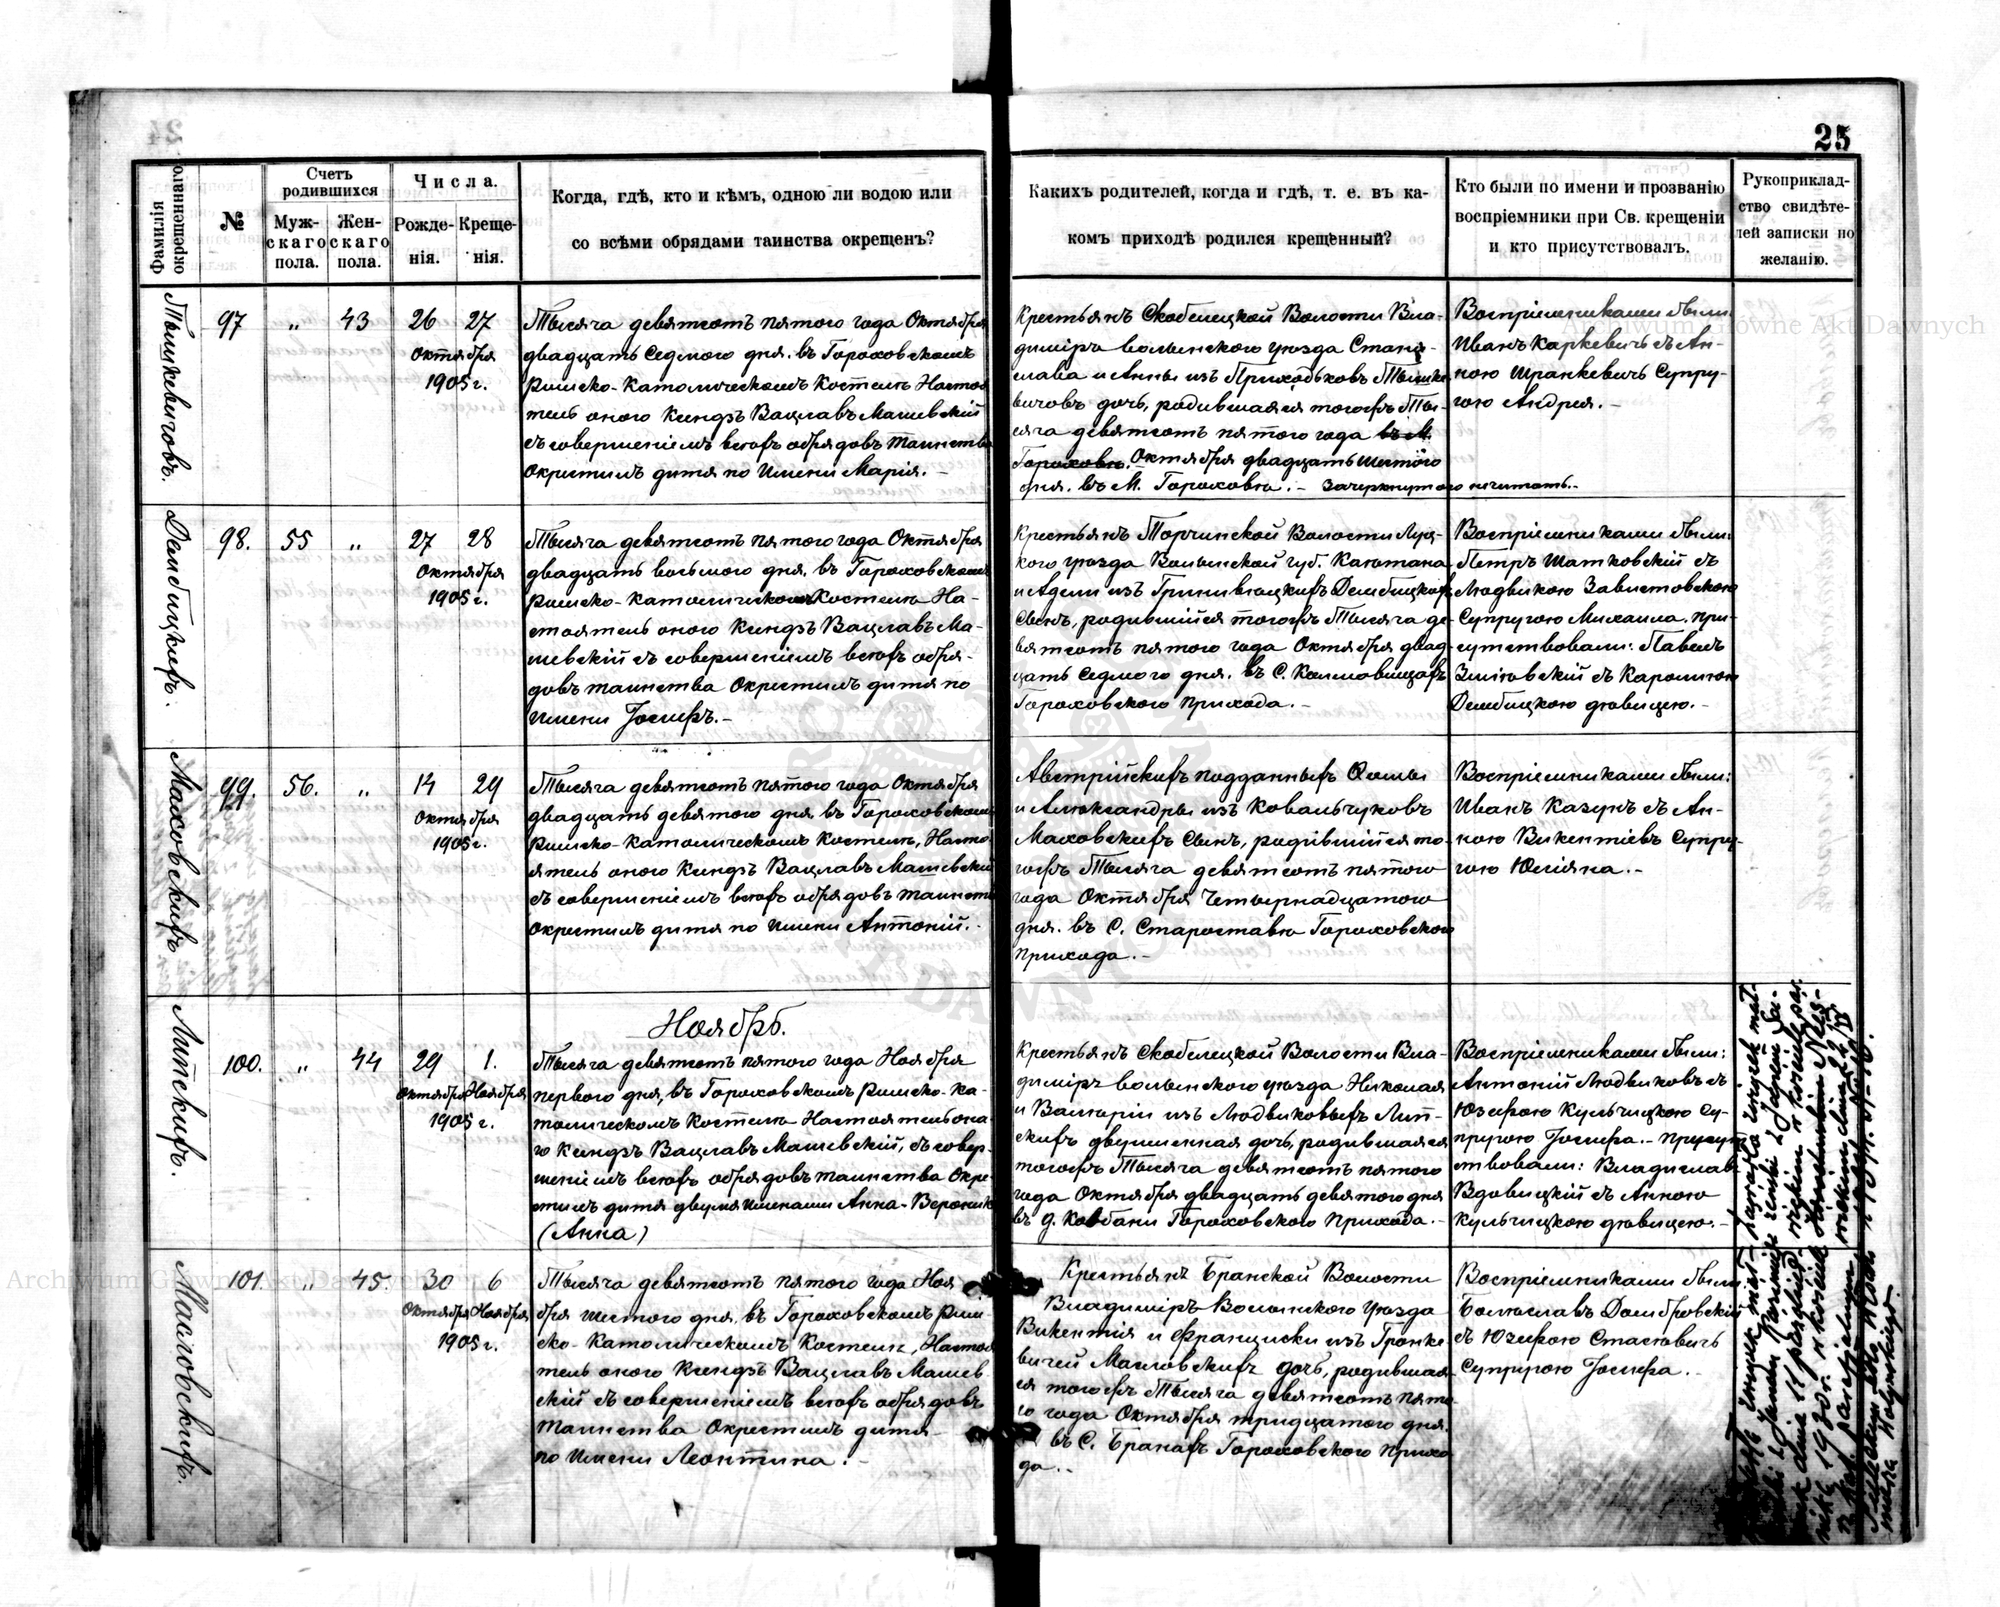 25
Фамилія окрещеннаго.
№
Счетъ родившихся
Муж-скаго пола.
Жен-скаго пола.
Числа.
Рожде-нія.
Креще-нія.
Когда, гдѣ, кто и кѣмъ, одною ли водою или
со всѣми обрядами таинства окрещенъ?
Какихъ родителей, когда и гдѣ, т. е. въ ка-
комъ приходѣ родился крещенный?
Кто были по имени и прозванію
воспріемники при Св. крещеніи
и кто присутствовалъ.
Рукоприклад-
ство свидѣте-
лей записки по
желанію.
Тышкевичовъ.
97 „ 43 26 27
Октября
1905 г.
Тысяча девятсотъ пятого года Октября
двадцать седмого дня. въ Гороховскомъ
Римско-Католическомъ Костелѣ Настоя
тель оного Ксендзъ Вацлавъ Машевскій
съ совершеніемъ всехъ обрядовъ таинства
окрестилъ дитя по имени Марія. –
Крестьянъ Скобелецкой Волости Вла-
димiръ волынского уѣзда Стани-
слава и Анны изъ Приходьковъ Тышке
вичовъ дочь, родившаяся тогожъ Ты-
сяча девятсотъ пятого года въ М.
Гороховѣ. Октября двадцать шестого
дня. въ М. Гороховѣ. – Зачеркнутого нечитать. –
Воспріемниками были
Иванъ Каркевичъ съ Ан-
ною Шранкевичъ Супру-
гою Андрея. –
Дембицкихъ.
98. 55 „ 27 28
Октября
1905 г.
Тысяча девятсотъ пятого года Октября
двадцать восьмого дня. въ Гороховскомъ
Римско-Католическомъ Костелѣ На-
стоятель оного Ксендзъ Вацлавъ Ма-
шевскій съ совершеніемъ всехъ обря-
довъ таинства Окрестилъ дитя по
имени Іосифъ. –
Крестьянъ Торчинской Волости Луц-
кого уѣзда Волынской губ. Каэтана
и Адели изъ Дембицкихъ
Сынъ, родившійся тогожъ Тысяча де-
вятсотъ пятого года Октября двад-
цать седмого дня. въ С.
Гороховского прихода. –
Воспріемниками были:
Петръ Шатковскій съ
Людвикою Завистовскою
Супругою Михаила. При-
сутствовали: Павелъ
съ Каролиною
Дембицкою дѣвицею. –
Маховскихъ
99. 56. „ 14 29
Октября
1905 г.
Тысяча девятсотъ пятого года Октября
двадцать девятого дня. въ Гороховскомъ
Римско-Католическомъ Костелѣ, Насто-
ятель оного Ксендзъ Вацлавъ Машевскій
съ совершеніемъ всехъ обрядовъ таинства
окрестилъ дитя по имени Антоній. –
Австрійскихъ подданныхъ Фомы
и Александры изъ Ковальчуковъ
Маховскихъ Сынъ, родившійся то-
гожъ Тысяча девятсотъ пятого
года Октября Четырнадцатого
дня. въ С. Староставѣ Гороховского
прихода. –
Воспріемниками были:
Иванъ Казунъ съ Ан-
ною Викентіевъ Супру-
гою Юліяна. –
Липскихъ.
Ноябрь.
100. „ 44 29 1.
Октября Ноября
1905 г.
Тысяча девятсотъ пятого года Ноября
первого дня, въ Гороховскомъ Римско-Ка-
толическомъ Костелѣ Настоятель она-
го Ксендзъ Вацлавъ Машевскій, съ совер-
шеніемъ всехъ обрядовъ таинства Окре-
стилъ дитя двумя именами Анна-Вероника
(Анна)
Крестьянъ Скобелецкой Волости Вла-
димiръ волынского уѣзда Николая
и Валеріи изъ Людвиковыхъ Лип-
скихъ двуименная дочь, родившаяся
тогожъ Тысяча девятсотъ пятого
года Октября двадцать девятого дня
въ д. Колбани Гороховского прихода. –
Воспріемниками были:
Антоній Людвиковъ съ
Юзефою Кульчицкою Су-
пругою Іосифа. – Присут
ствовали: Владиславъ
Вдовицкій съ Анною
Кульчицкою дѣвицею. –
Масловскихъ.
101. „ 45. 30 6
Октября Ноября
1905 г.
Тысяча девятсотъ пятого года Ноя
бря шестого дня, въ Гороховскомъ Рим
ско-Католическомъ Костелѣ, Настоя
тель оного Ксендзъ Вацлавъ Машев
скій съ совершеніемъ всехъ обрядовъ
таинства Окрестилъ дитя
по имени Леонтина. –
Крестьянъ Бранской Волости
Владимiръ-Волынского уѣзда
Викентія и Франциски изъ Гронке
вичей Масловскихъ дочь, родившая
ся тогожъ Тысяча девятсотъ пято-
го года Октября тридцатого дня.
въ С. Бранахъ Гороховского прихо
да. –
Воспріемниками были
Болеславъ Домбровскій
съ Юзефою Стасевичъ
Супругою Іосифа. –
Archiwum Główne Akt Dawnych
Archiwum Główne Akt Dawnych